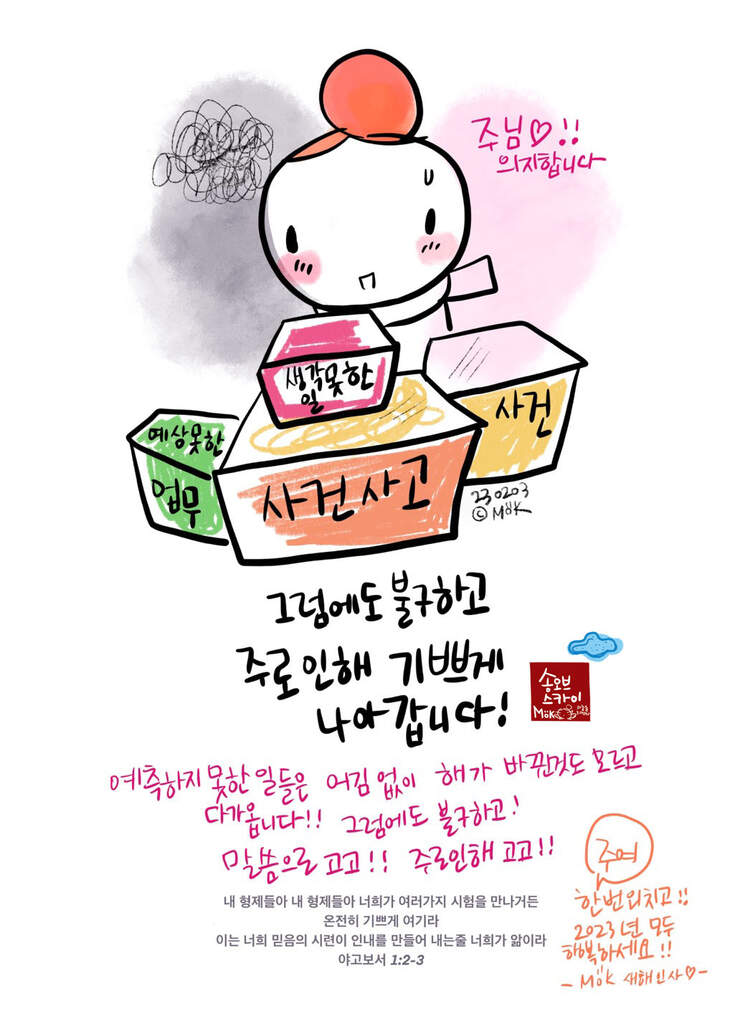 주님♡!!
의지합니다
생각못한
일
예상못한
업무
사건사고
사건
230203
©MöK
그럼에도 불구하고
주로인해 기쁘게
나아갑니다!
송오브
스카이
MöK
예측하지 못한 일들은 어김 없이 해가 바뀐것도 모르고
다가옵니다!! 그럼에도 불구하고!
말씀으로 고고!! 주로인해 고고!!
내 형제들아 내 형제들아 너희가 여러가지 시험을 만나거든
온전히 기쁘게 여기라
이는 너희 믿음의 시련이 인내를 만들어 내는줄 너희가 앎이라
야고보서 1:2-3
주여
한번외치고!!
2023년 모두
행복하세요!!
- MöK 새해인사♡-